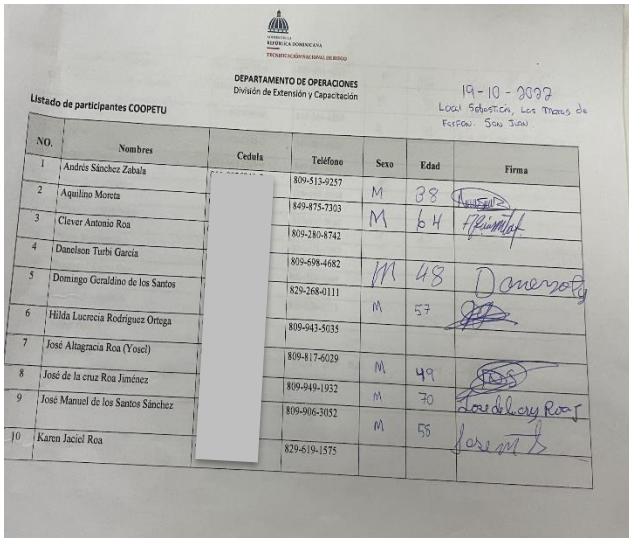 GOBIERNO DE LA
REPÚBLICA DOMINICANA
TECNIFICACIÓN NACIONAL DE RIEGO
DEPARTAMENTO DE OPERACIONES
División de Extensión y Capacitación
19-10-2022
Listado de participantes COOPETU
Local Sabaneta, Las Matas de
Farfan. San Juan
NO. Nombres Cedula Teléfono Sexo Edad Firma
1 Andrés Sánchez Zabala 809-513-9257 M 38
2 Aquilino Moreta 849-875-7303 M 64
3 Clever Antonio Roa 809-280-8742
4 Danelson Turbi García 809-698-4682 M 48
5 Domingo Geraldino de los Santos 829-268-0111 M 57
6 Hilda Lucrecia Rodríguez Ortega 809-943-5035
7 José Altagracia Roa (Yosel) 809-817-6029 M 49
8 José de la cruz Roa Jiménez 809-949-1932 M 70 Jose de la cruz Roa J
9 José Manuel de los Santos Sánchez 809-906-3052 M 58 Jose M S
10 Karen Jaciel Roa 829-619-1575